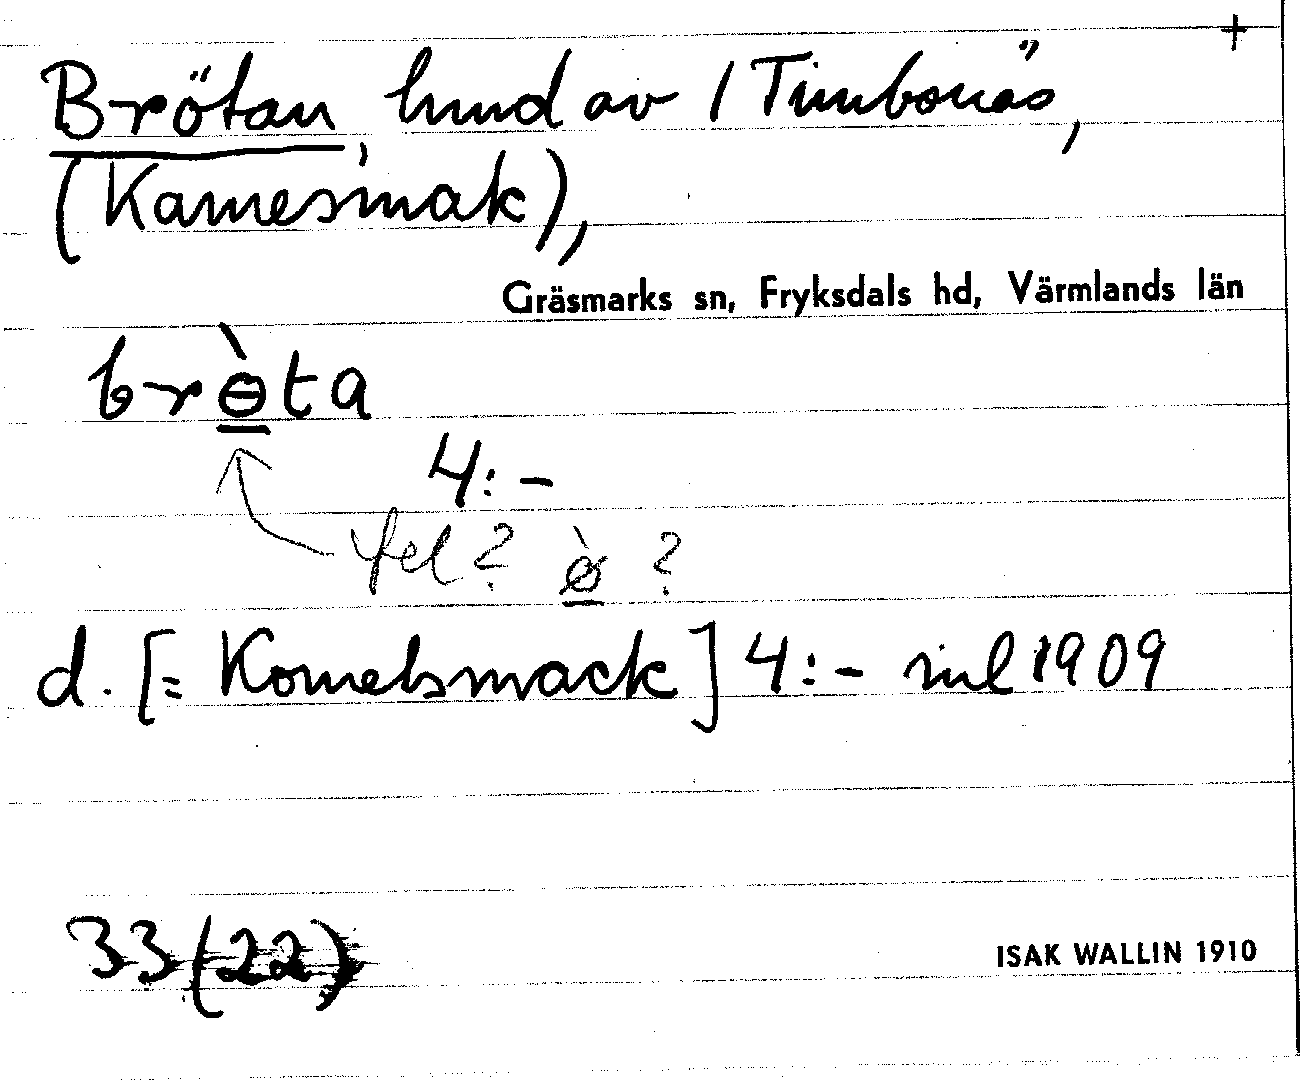 +
Brötan, hmd av 1 Timbonäs,
(Kamesmak),
Gräsmarks sn, Fryksdals hd, Värmlands län
brɵ̠̀ta
4:-
fel? ø̠̀ ?
d. [= Komelsmack] 4:- jul 1909
33 (22)
ISAK WALLIN 1910